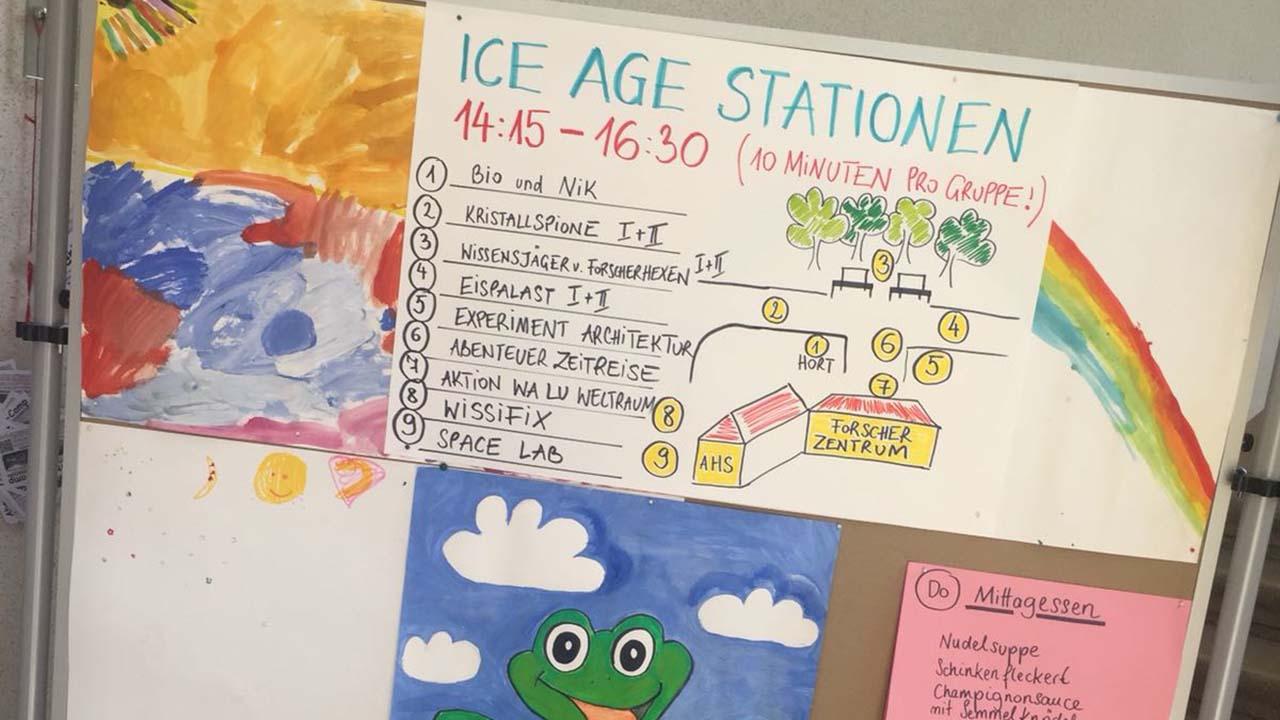 ICE AGE STATIONEN
14:15 – 16:30 (10 MINUTEN PRO GRUPPE!)
1 Bio und NiK
2 KRISTALLSPIONE I+II
3 WISSENSJÄGER v. FORSCHERHEXEN I+II
4 EISPALAST I+II
5 EXPERIMENT ARCHITEKTUR
6 ABENTEUER ZEITREISE
7 AKTION WA LU WELTRAUM
8 WISSIFIX
9 SPACE LAB
3
2
4
1
HORT
6
5
7
8
9
AHS
FORSCHER
ZENTRUM
Do Mittagessen
Nudelsuppe
Schinkenfleckerl
Champignonsauce
mit Semmelknöde